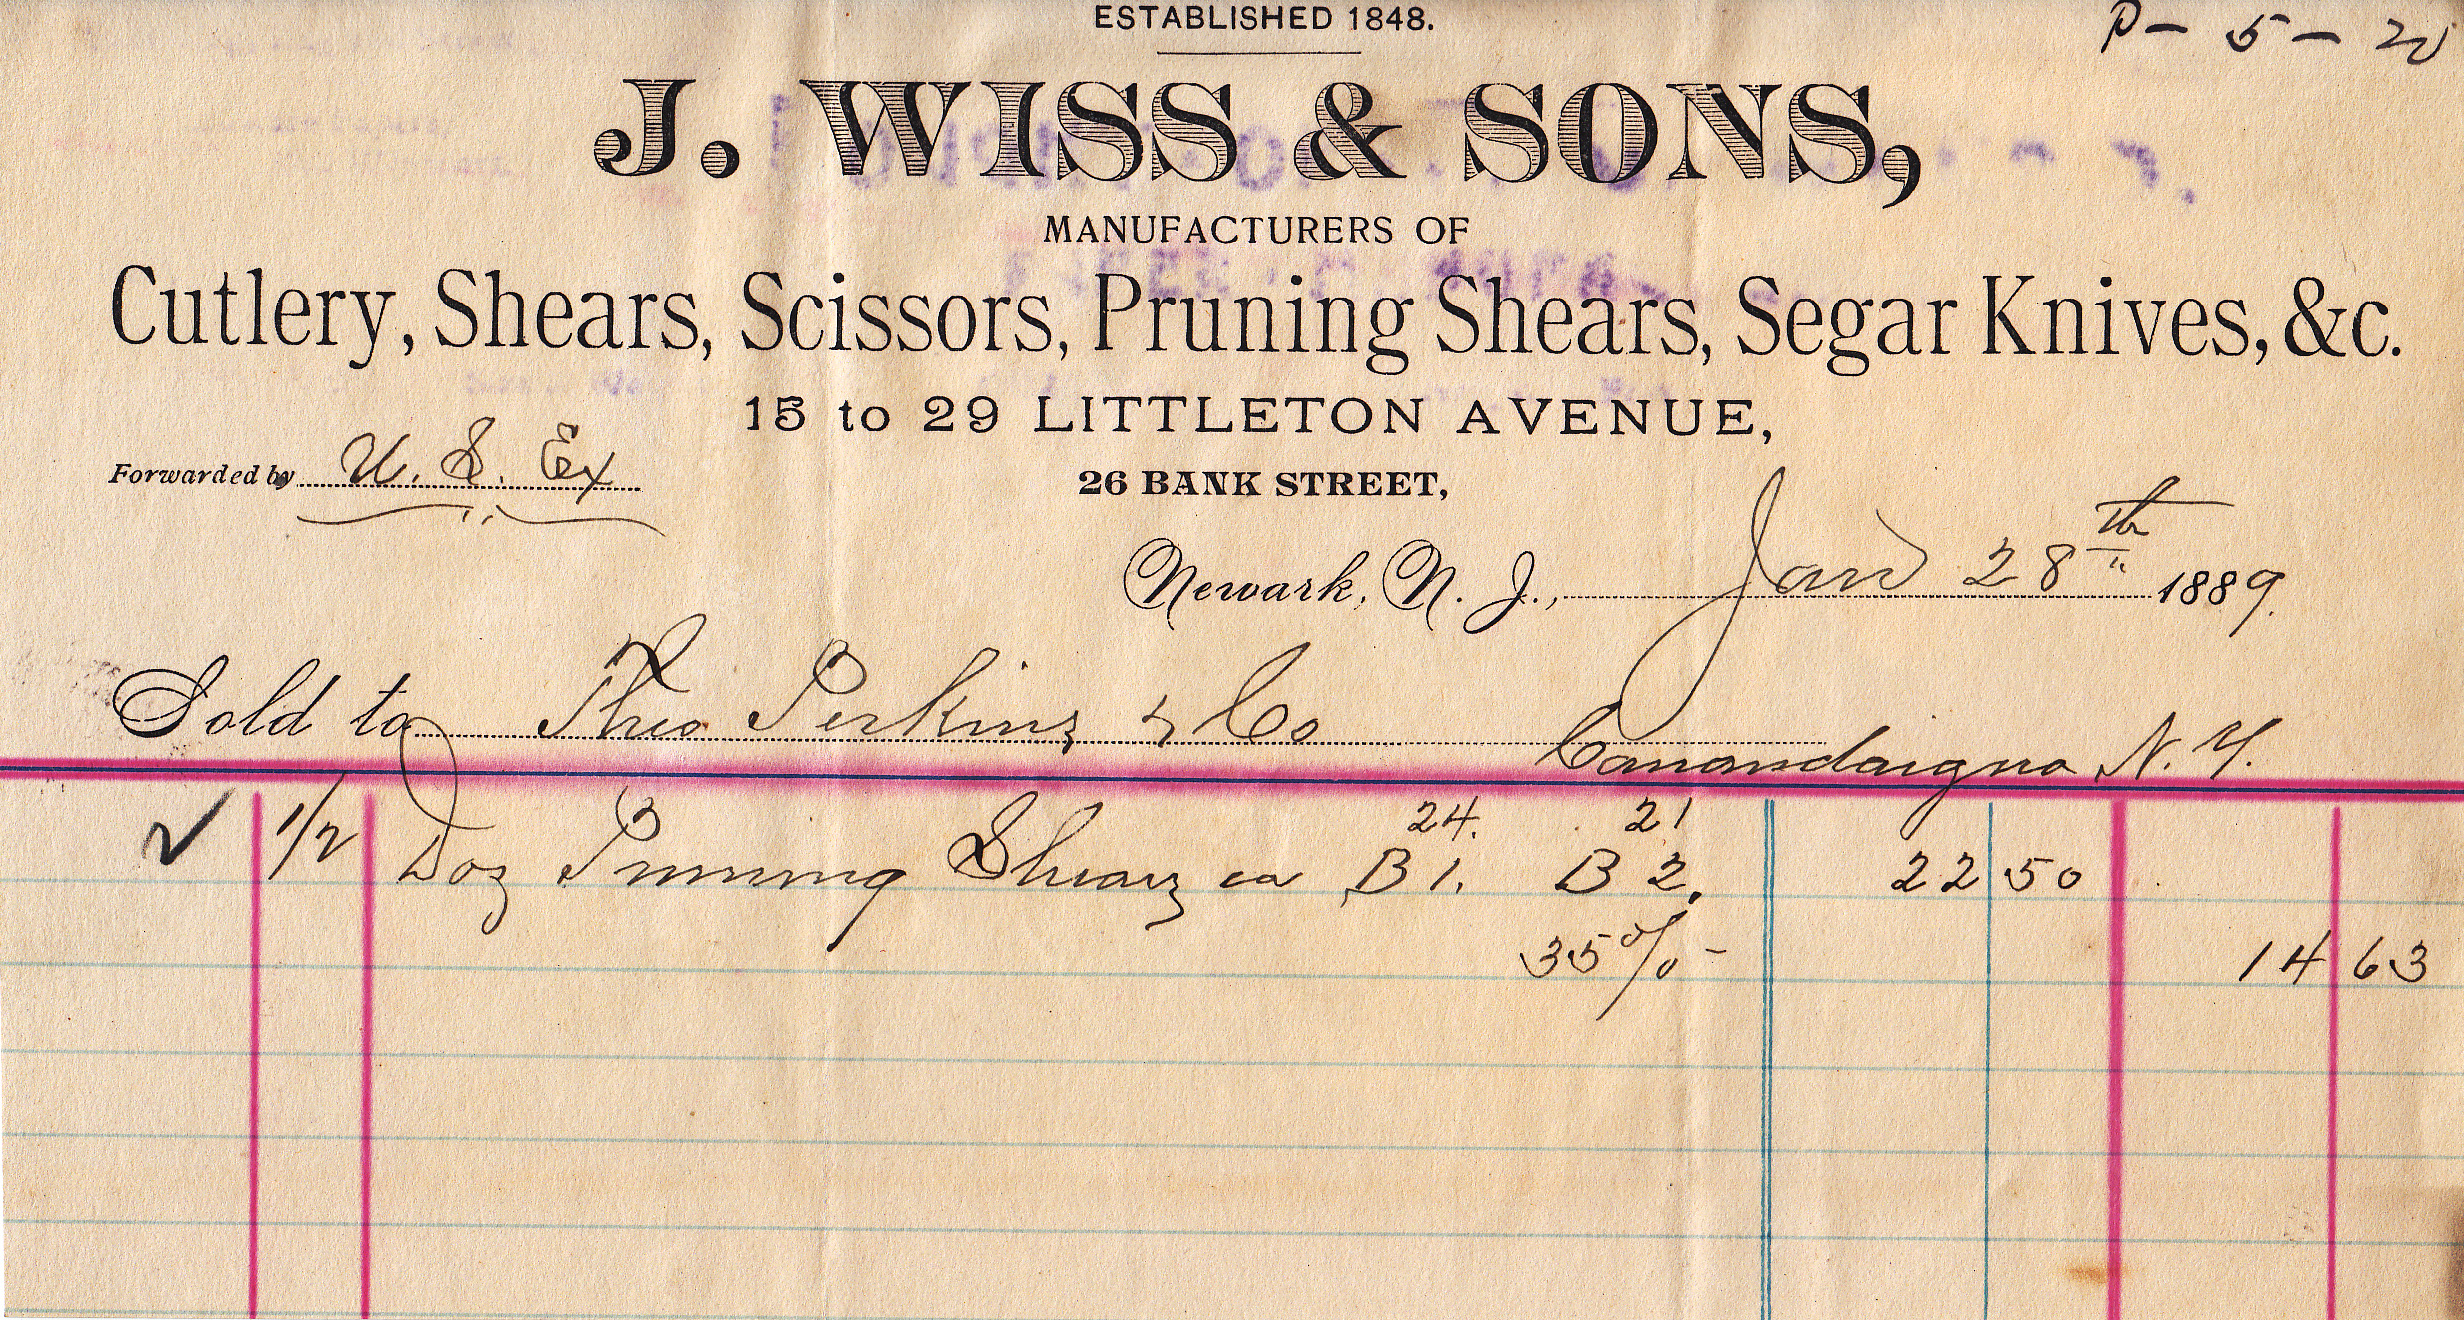 ESTABLISHED 1848.
P - 5 - 20
J. WISS & SONS,
MANUFACTURERS OF
Cutlery, Shears, Scissors, Pruning Shears, Segar Knives, &c.
15 to 29 LITTLETON AVENUE,
Forwarded by U. S. Ex
26 BANK STREET,
Newark, N. J., Jan 28th 1889.
Sold to Theo Perkins & Co Canandaigua N. Y.
24. 21
✓ 1/2 Doz Pruning Shears ea B 1. B 2. 22 50
35% - 14 63